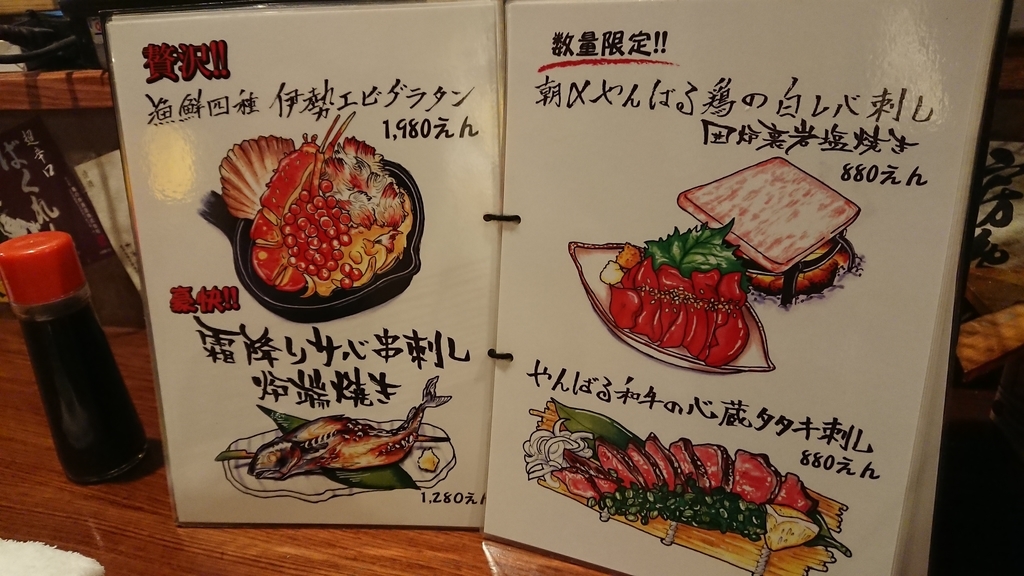 贅沢!!
漁鮮四種 伊勢エビグラタン
1,980えん
豪快!!
霜降りサバ串刺し
炉端焼き
1,280えん
数量限定!!
朝〆やんばる鶏の白レバ刺し
囲炉裏岩塩焼き
880えん
やんばる和牛の心蔵タタキ刺し
880えん
超辛口